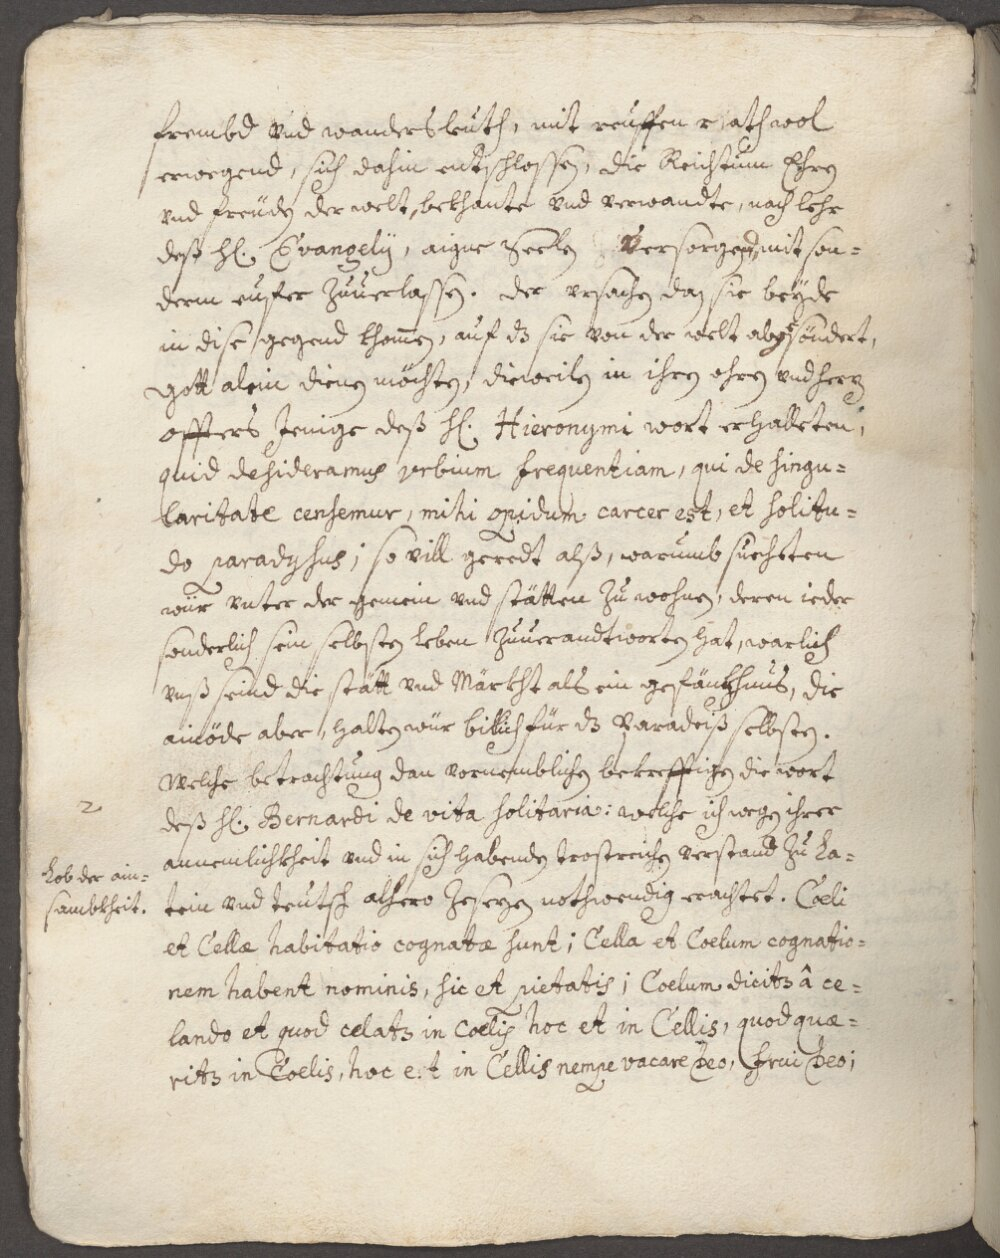 frembd vnd wandersleuth, mit reuffen rathwol
erwegend, sich dahin entschlossen, die Reichtum Ehren
vnd freüdn der welt, bekhante vnd verwandte, nach lehr
deß hl. Evangelij, aigne Seelen versorgend, mit son=
derm eufer zuuerlassen. der vrsachen daz sie beyde
in dise gegend khomen, auf dz sie von der welt abgesöndert,
Gott alein dienen möchten, dieweilen in ihren ohren vnd herzen
offters Jenige deß hl. Hieronymi wort erhalleten,
quid desideramus vrbium frequentiam, qui de singu=
laritate censemur, mihi opidum carcer est, et solitu=
do paradysus; so vill geredt alß, warumb suechten
wür vnter der gemein vnd stätten zu wohnen, deren ieder
sonderlich sein selbsten leben zuuerandtworten hat, warlich
vnß seind die stätt vnd Märkht als ein gefänkhnus, die
ainöde aber, halten wür billich für dz Paradeiß selbsten.
Welche betrachtung dan vornemblichen bekrefftigen die wort
deß hl. Bernardi de vita solitaria: welche ich wegen ihrer
annemlichkheit vnd in sich habenden trostreichen verstand zu La=
tein vnd teutsch alhero zesezen nothwendig erachtet. Coeli
et Cellæ habitatio cognatæ sunt; Cella et Coelum cognatio=
nem habent nominis, sic et pietatis; Coelum dicitz â ce=
lando et quod celatz in Coelis hoc et in Cellis, quod quæ=
ritz in Coelis, hoc et in Cellis nempe vacare Deo, frui Deo;
2
Lob der ain=
sambkheit.